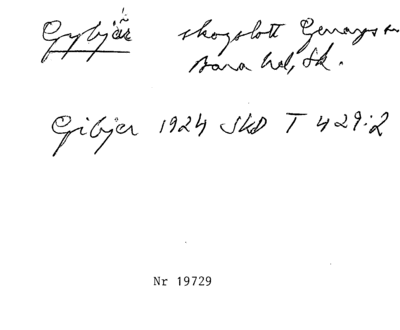 Gybjär skogslott Genarps sn
Bara hd, Sk.
Gibjer 1924 SkD T 429:2
Nr 19729